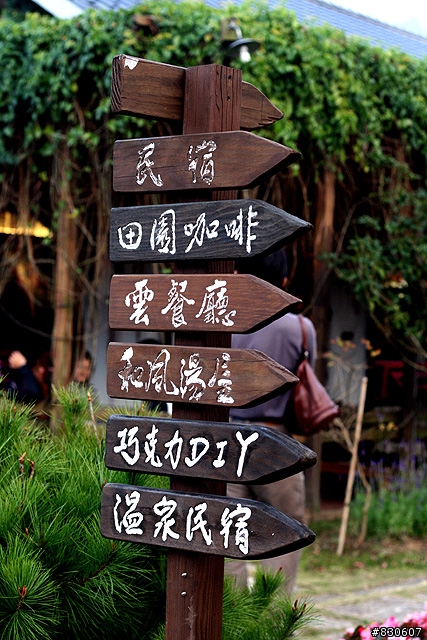 民宿
田園咖啡
雲餐廳
和風湯屋
巧克力DIY
溫泉民宿
#830607